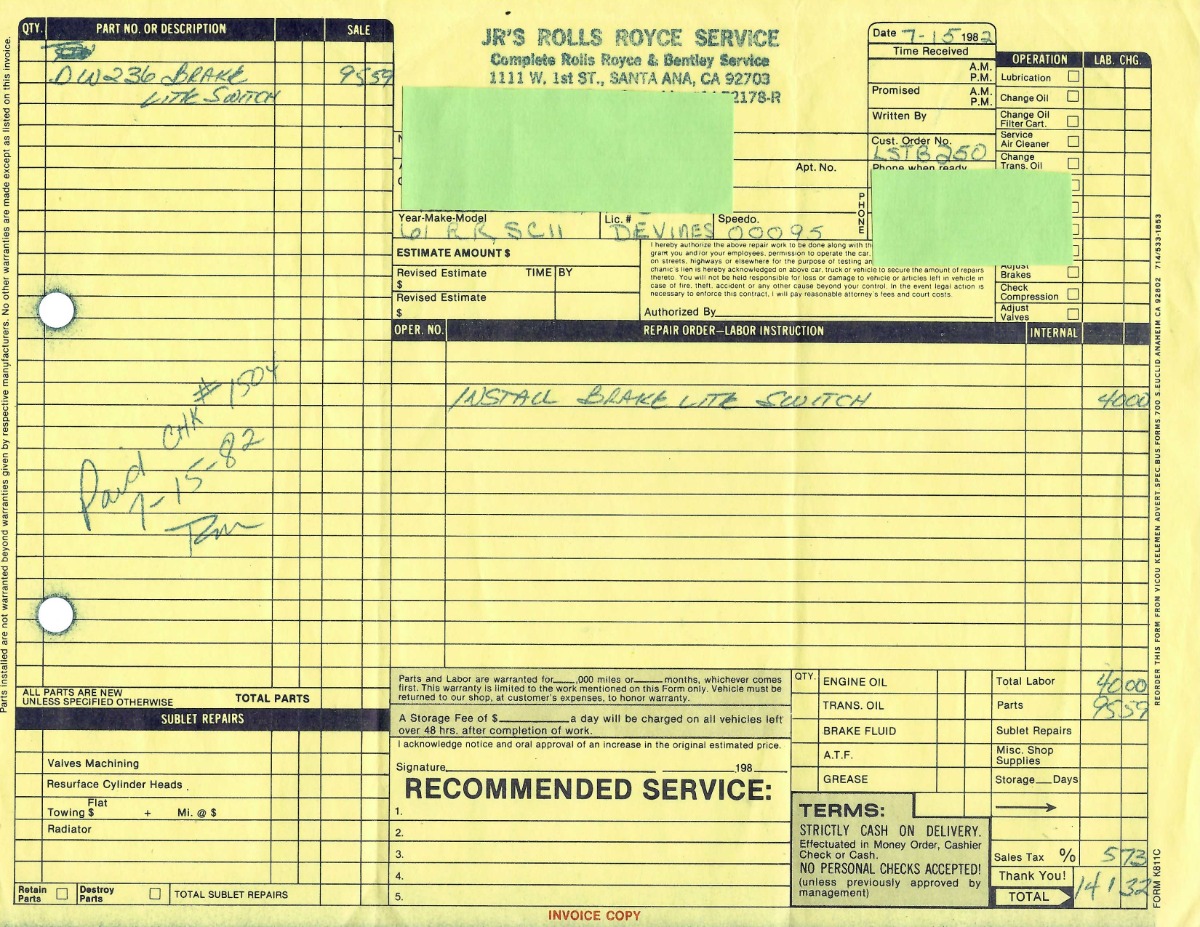 QTY. PART NO. OR DESCRIPTION SALE
DW236 BRAKE 95 59
LITE SWITCH
Paid CHK # 1504
7-15-82
Tom
ALL PARTS ARE NEW
UNLESS SPECIFIED OTHERWISE TOTAL PARTS
SUBLET REPAIRS
Valves Machining
Resurface Cylinder Heads
Flat
Towing $ + Mi. @ $
Radiator
Retain Parts Destroy Parts TOTAL SUBLET REPAIRS
Parts installed are not warranted beyond warranties given by respective manufacturers. No other warranties are made except as listed on this invoice.
JR'S ROLLS ROYCE SERVICE
Complete Rolls Royce & Bentley Service
1111 W. 1st ST., SANTA ANA, CA 92703
2178-R
Apt. No.
PHONE
Year-Make-Model Lic. # Speedo.
61 RR SCII DEVINES 00095
ESTIMATE AMOUNT $
Revised Estimate TIME BY
$
Revised Estimate
$
I hereby authorize the above repair work to be done along with th
grant you and/or your employees, permission to operate the car,
on streets, highways or elsewhere for the purpose of testing an
chanic's lien is hereby acknowledged on above car, truck or vehicle to secure the amount of repairs
thereto. You will not be held responsible for loss or damage to vehicle or articles left in vehicle in
case of fire, theft, accident or any other cause beyond your control. In the event legal action is
necessary to enforce this contract, I will pay reasonable attorney's fees and court costs.
Authorized By
Date 7-15 1982
Time Received
A.M.
P.M.
Promised A.M.
P.M.
Written By
Cust. Order No.
LSTB250
Phone when ready
OPERATION LAB. CHG.
Lubrication
Change Oil
Change Oil
Filter Cart.
Service
Air Cleaner
Change
Trans. Oil
Adjust
Brakes
Check
Compression
Adjust
Valves
OPER. NO. REPAIR ORDER—LABOR INSTRUCTION INTERNAL
INSTALL BRAKE LITE SWITCH 40 00
Parts and Labor are warranted for ,000 miles or months, whichever comes
first. This warranty is limited to the work mentioned on this Form only. Vehicle must be
returned to our shop, at customer's expenses, to honor warranty.
A Storage Fee of $ a day will be charged on all vehicles left
over 48 hrs. after completion of work.
I acknowledge notice and oral approval of an increase in the original estimated price.
Signature 198
RECOMMENDED SERVICE:
1.
2.
3.
4.
5.
QTY. ENGINE OIL
TRANS. OIL
BRAKE FLUID
A.T.F.
GREASE
TERMS:
STRICTLY CASH ON DELIVERY.
Effectuated in Money Order, Cashier
Check or Cash.
NO PERSONAL CHECKS ACCEPTED!
(unless previously approved by
management)
Total Labor 40 00
Parts 95 59
Sublet Repairs
Misc. Shop
Supplies
Storage Days
Sales Tax % 5 73
Thank You!
TOTAL 141 32
INVOICE COPY
REORDER THIS FORM FROM VICOU KELEMEN ADVERT SPEC. BUS. FORMS 700 S. EUCLID ANAHEIM CA 92802 714/533-1853
FORM K811C